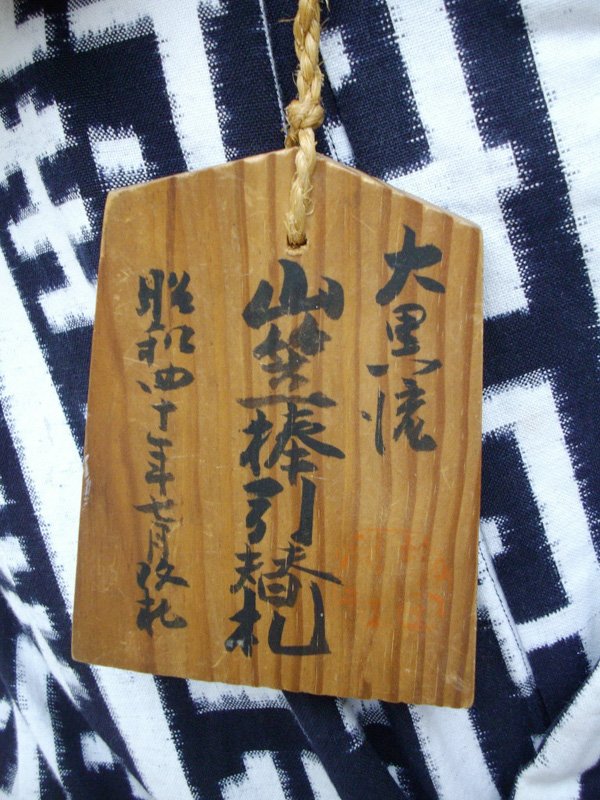 大黒流
山笠棒引替札
昭和四十年七月改札